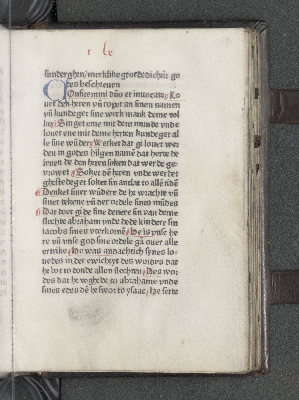 sunderghen merklike gordedichte go
den beschreuen
Confitemini dño et inuocate Lo
uet den heren vñ ropet an sinen namen
vñ kundeget sine werk mank deme vol
ke Singet eme mit dem munde vnde
louet ene mit deme herten kundeget al
le sine wūder Werdet dar gi louet wer
den in godes hilgen namē dat herte de
iennen de den heren soken dat werde ge
vrowet Soket dē heren vnde werdet
ghestedeget soket sin antlat to allē tidē
Denket siner wūdere de he wrachte vñ
siner tekene vñ der ordele sines mūdes
Dat doet gi de sine denere sin van deme
slechte abraham vnde de kindere sin
iacobs sines vterkornē He is vnse he
re vñ vnse god sine ordele gā ouer alle
ertrike He was andachtich synes lo
uedes in der ewicheyt des wordes dat
he bot to donde allen slechten Des wor
des dat he voghede to abrahame vnde
sines edes dē he swor to ysaac He sette